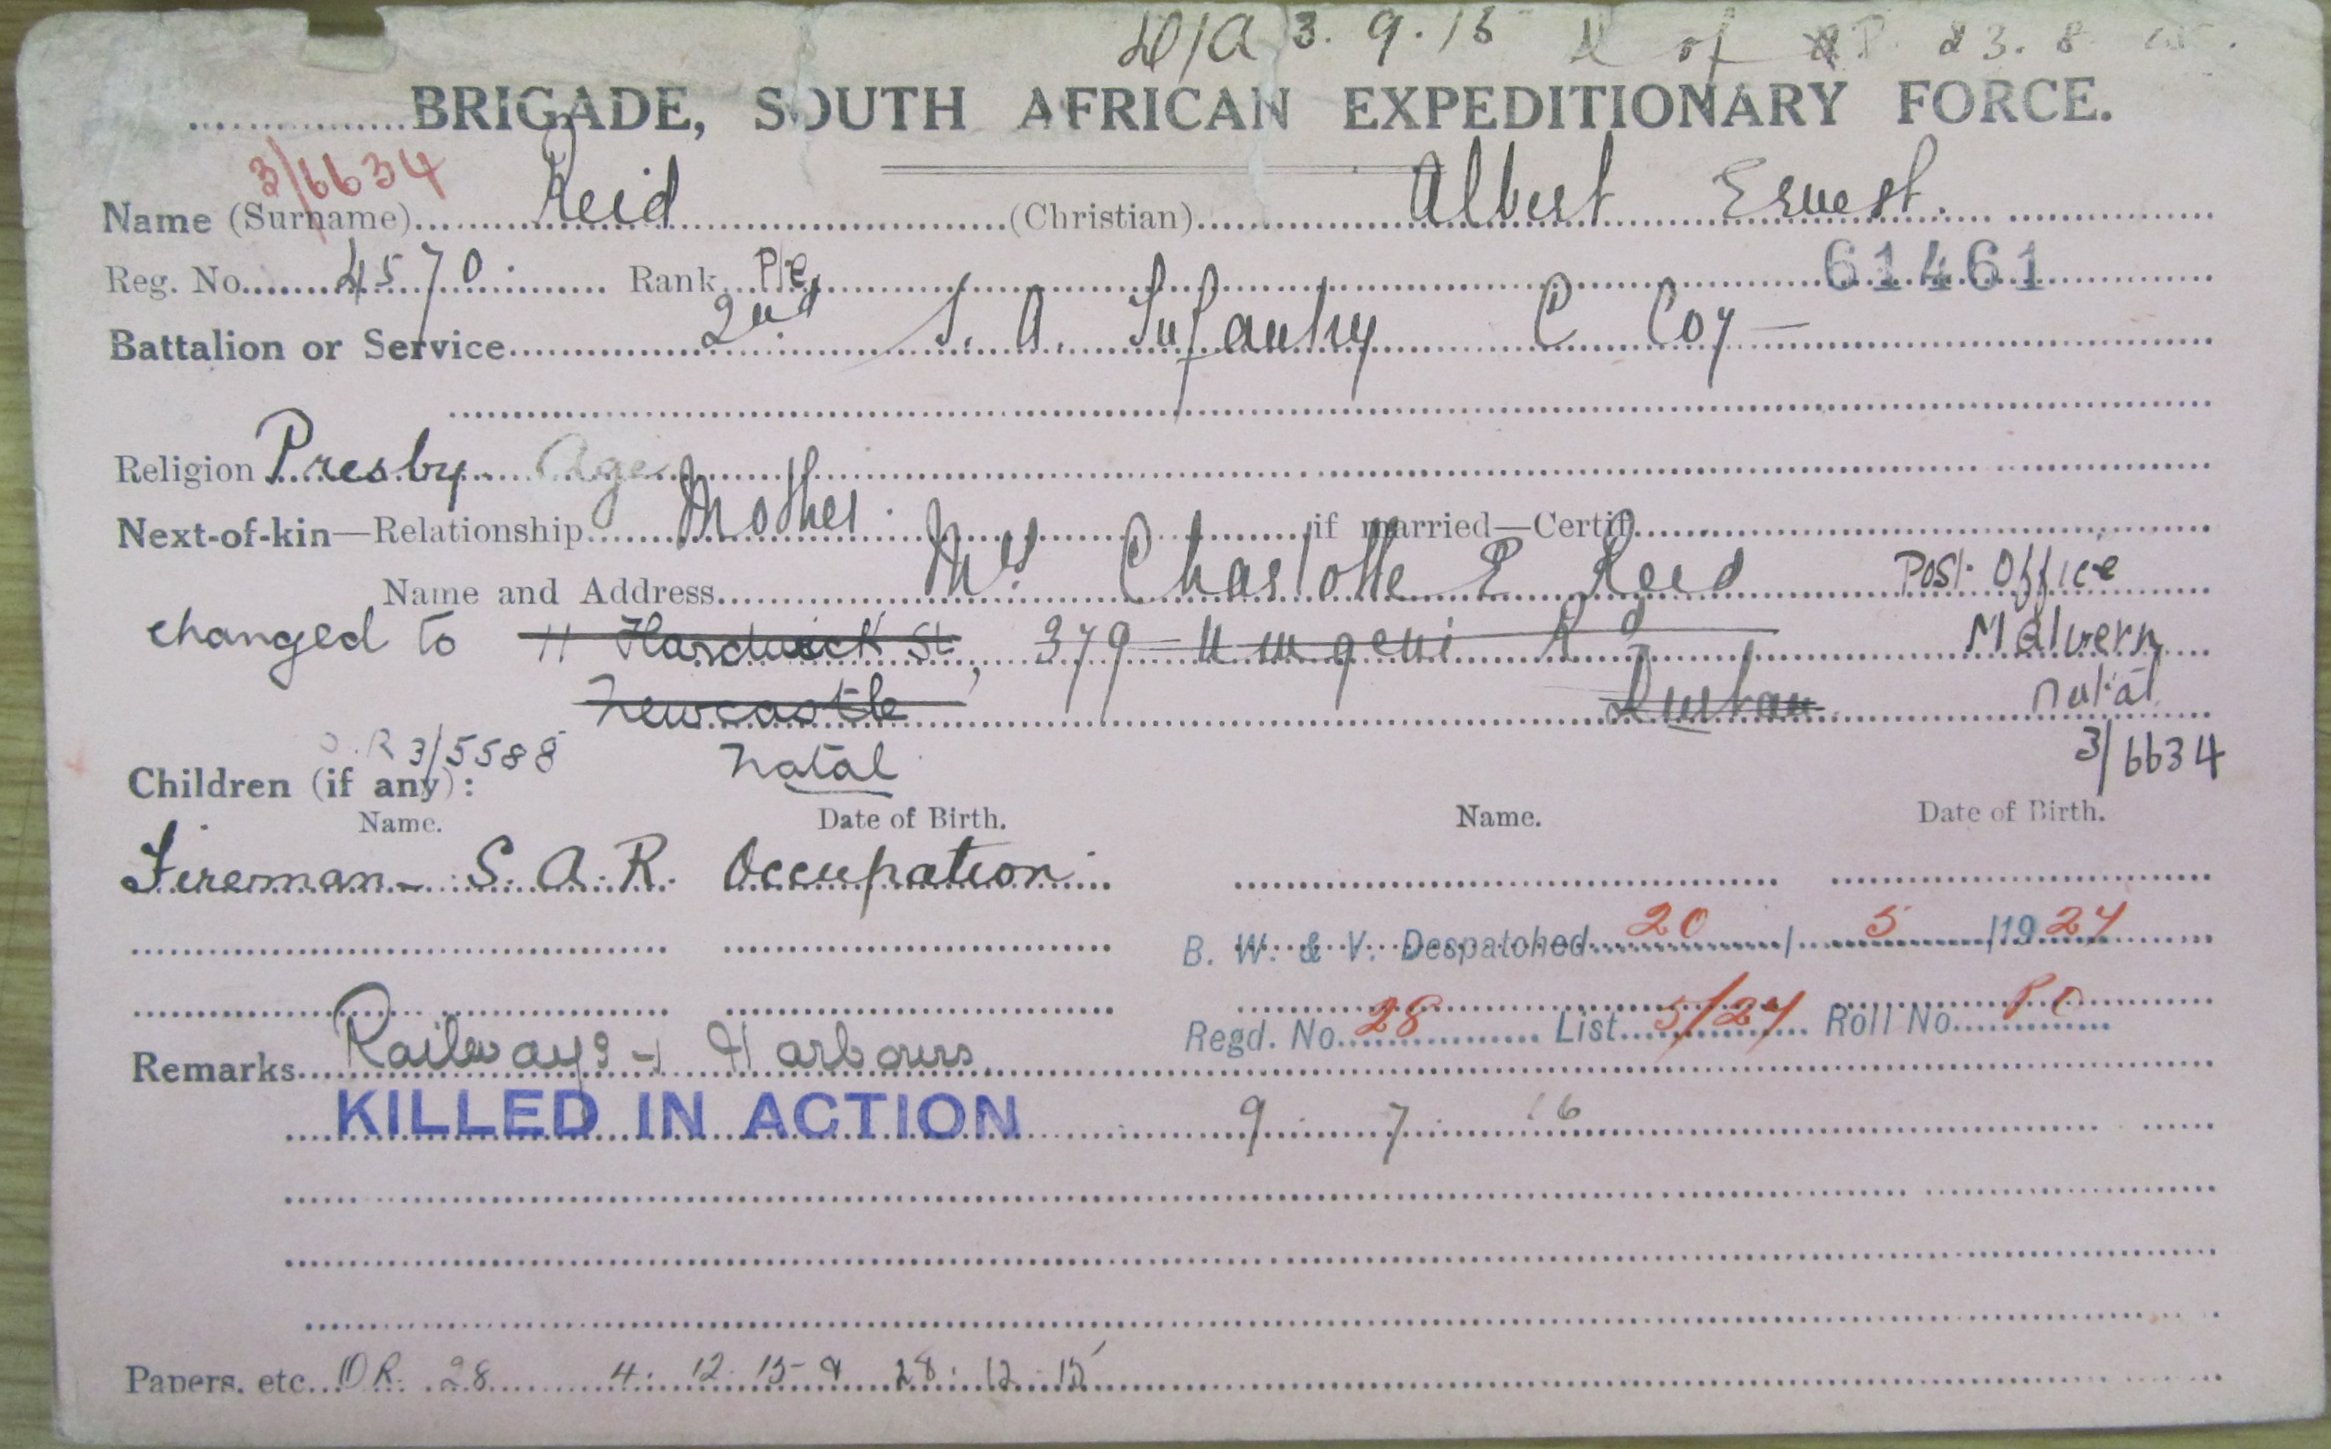 D/A 3.9.15 of 23.8.
BRIGADE, SOUTH AFRICAN EXPEDITIONARY FORCE.
3/6634
Name (Surname) Reid (Christian) Albert Ernest.
Reg. No. 4570. Rank Pte 61461
Battalion or Service 2nd S. A. Infantry C Coy —
Religion Presby. Age
Next-of-kin—Relationship Mother. if married—Certif.
Name and Address Mrs Charlotte E Reid Post Office
changed to 11 Hardwick St, 379 Umgeni Rd Malvern
Newcastle Durban Natal
O.R 3/5588 Natal 3/6634
Children (if any):
Name. Date of Birth. Name. Date of Birth.
Fireman - S. A. R. Occupation.
B. W. & V. Despatched 20 / 5 /1924
Regd. No. 28 List 5/24 Roll No.
Remarks Railways & Harbours
KILLED IN ACTION 9. 7. 16
Papers, etc. OR. 28 4. 12. 15 & 28. 12. 15